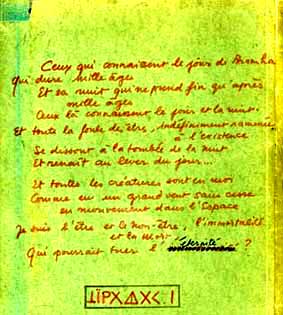 Ceux qui connaissent le jour de Bramha
qui dure mille âges
Et sa nuit qui ne prend fin qu'après
mille âges
Ceux là connaissent le jour et la nuit.
Et toute la foule des êtres, indéfiniment ramenée
à l'existence
Se dissout à la tombée de la nuit
Et renaît au lever du jour...
Et toutes les créatures sont en moi
Comme en un grand vent sans cesse
en mouvement dans l'Espace
Je suis l'être et le non-être, l'immortalité
et la mort,
Qui pourrait tuer l'éternité ?